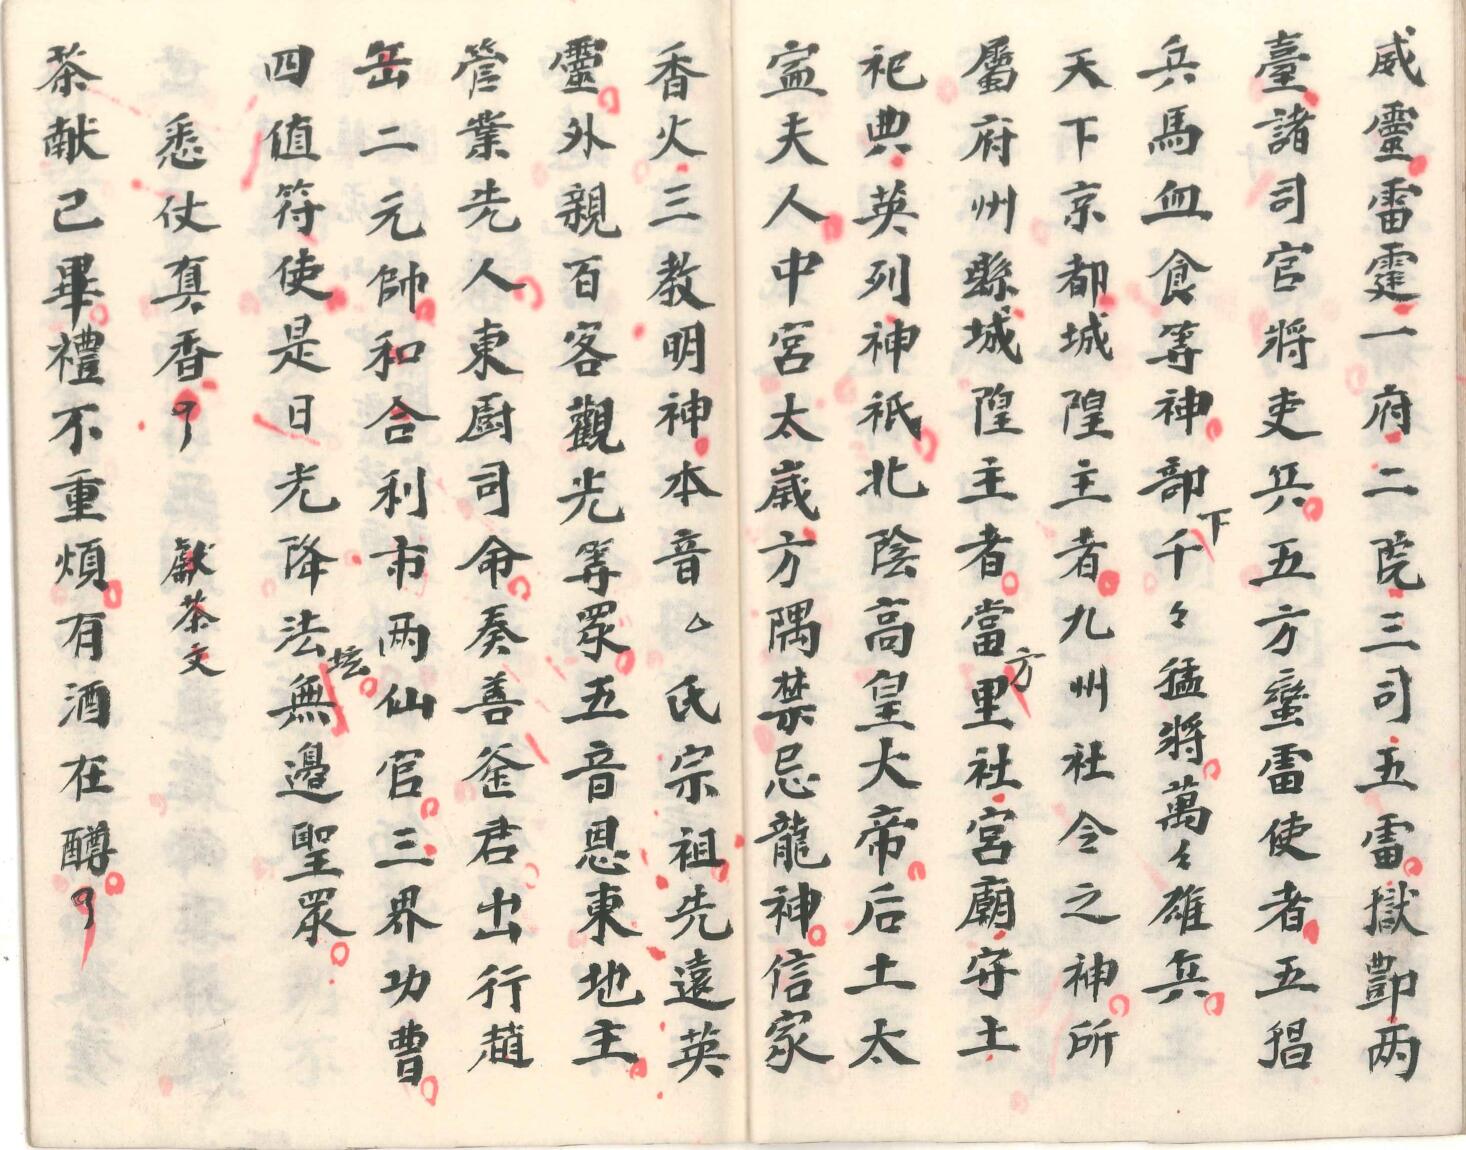 威靈雷霆一府二院三司五雷獄酆两
臺諸司官將吏兵五方蛮雷使者五猖
兵馬血食等神部下千々猛將萬々雄兵
天下京都城隍主者九州社令之神所
屬府州縣城隍主者當里方社宮廟守土
祀典英列神祇北陰高皇大帝后土太
寍夫人中宮太歲方隅禁忌龍神信家
香火三教明神本音厶氏宗祖先遠英
靈外親百客觀光等眾五音恩東地主
管業先人東厨司命奏善釜君出行趙
岳二元帥和合利市两仙官三界功曹
四值符使是日光降法坛無邊聖眾
悉仗真香 獻茶文
茶献已畢禮不重煩有酒在罇